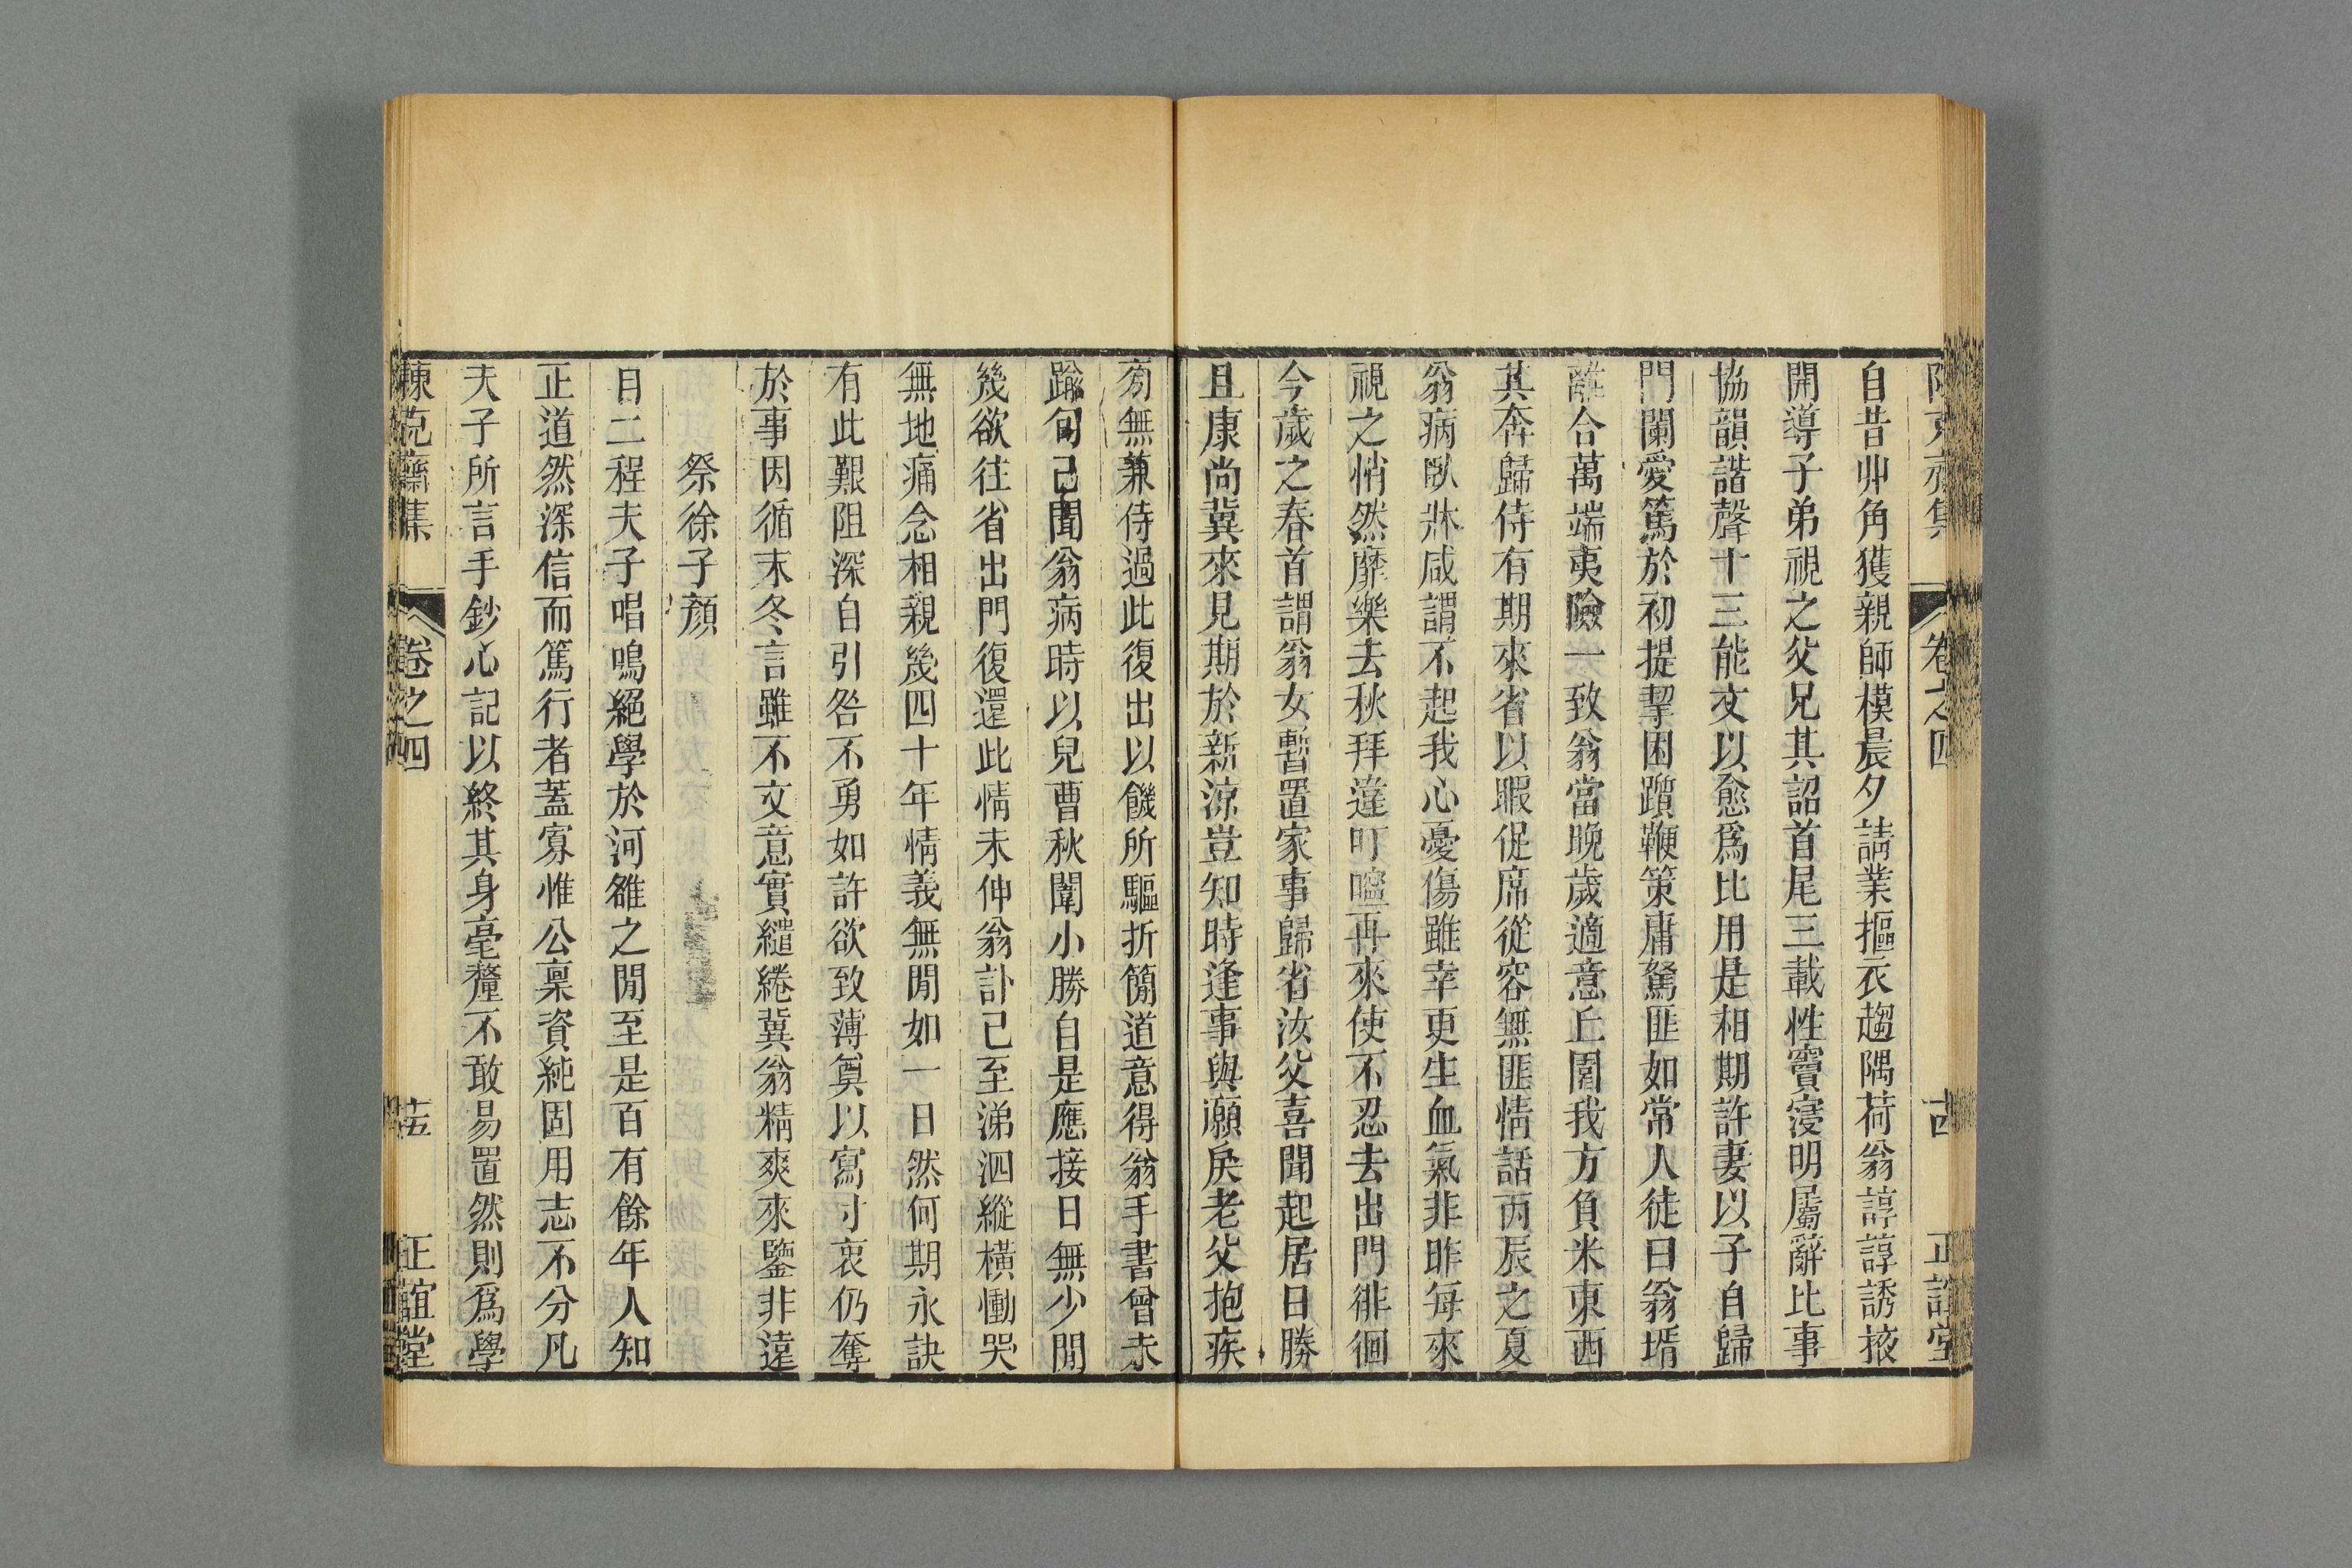 陳克齋集 卷之四 古 正誼堂
自昔丱角獲親師模晨夕請業摳衣趨隅荷翁諄諄誘掖
開導子弟視之父兄其詔首尾三載性竇寖明屬辭比事
協韻諧聲十三能文以愈爲比用是相期許妻以子自歸
門闌愛篤於初提挈困躓鞭策庸駑匪如常人徒曰翁壻
離合萬端夷險一致翁當晚歲適意丘園我方負米東西
其奔歸侍有期來省以暇促席從容無匪情話丙辰之夏
翁病臥牀咸謂不起我心憂傷雖幸更生血氣非昨每來
視之悄然靡樂去秋拜違叮嚀再來使不忍去出門徘徊
今歲之春首謂翁女暫置家事歸省汝父喜聞起居日勝
且康尚冀來見期於新涼豈知時逢事與願戾老父抱疾
旁無兼侍過此復出以饑所驅折簡道意得翁手書曾未
踰旬已聞翁病時以兒曹秋闈小勝自是應接日無少閒
幾欲往省出門復還此情未伸翁訃已至涕泗縱橫慟哭
無地痛念相親幾四十年情義無閒如一日然何期永訣
有此艱阻深自引咎不勇如許欲致薄奠以寫寸哀仍奪
於事因循末冬言雖不文意實繾綣冀翁精爽來鑒非遠
祭徐子顏
自二程夫子唱鳴絕學於河雒之閒至是百有餘年人知
正道然深信而篤行者蓋寡惟公稟資純固用志不分凡
夫子所言手鈔心記以終其身毫釐不敢易置然則爲學
陳克齋集 卷之四 十五 正誼堂